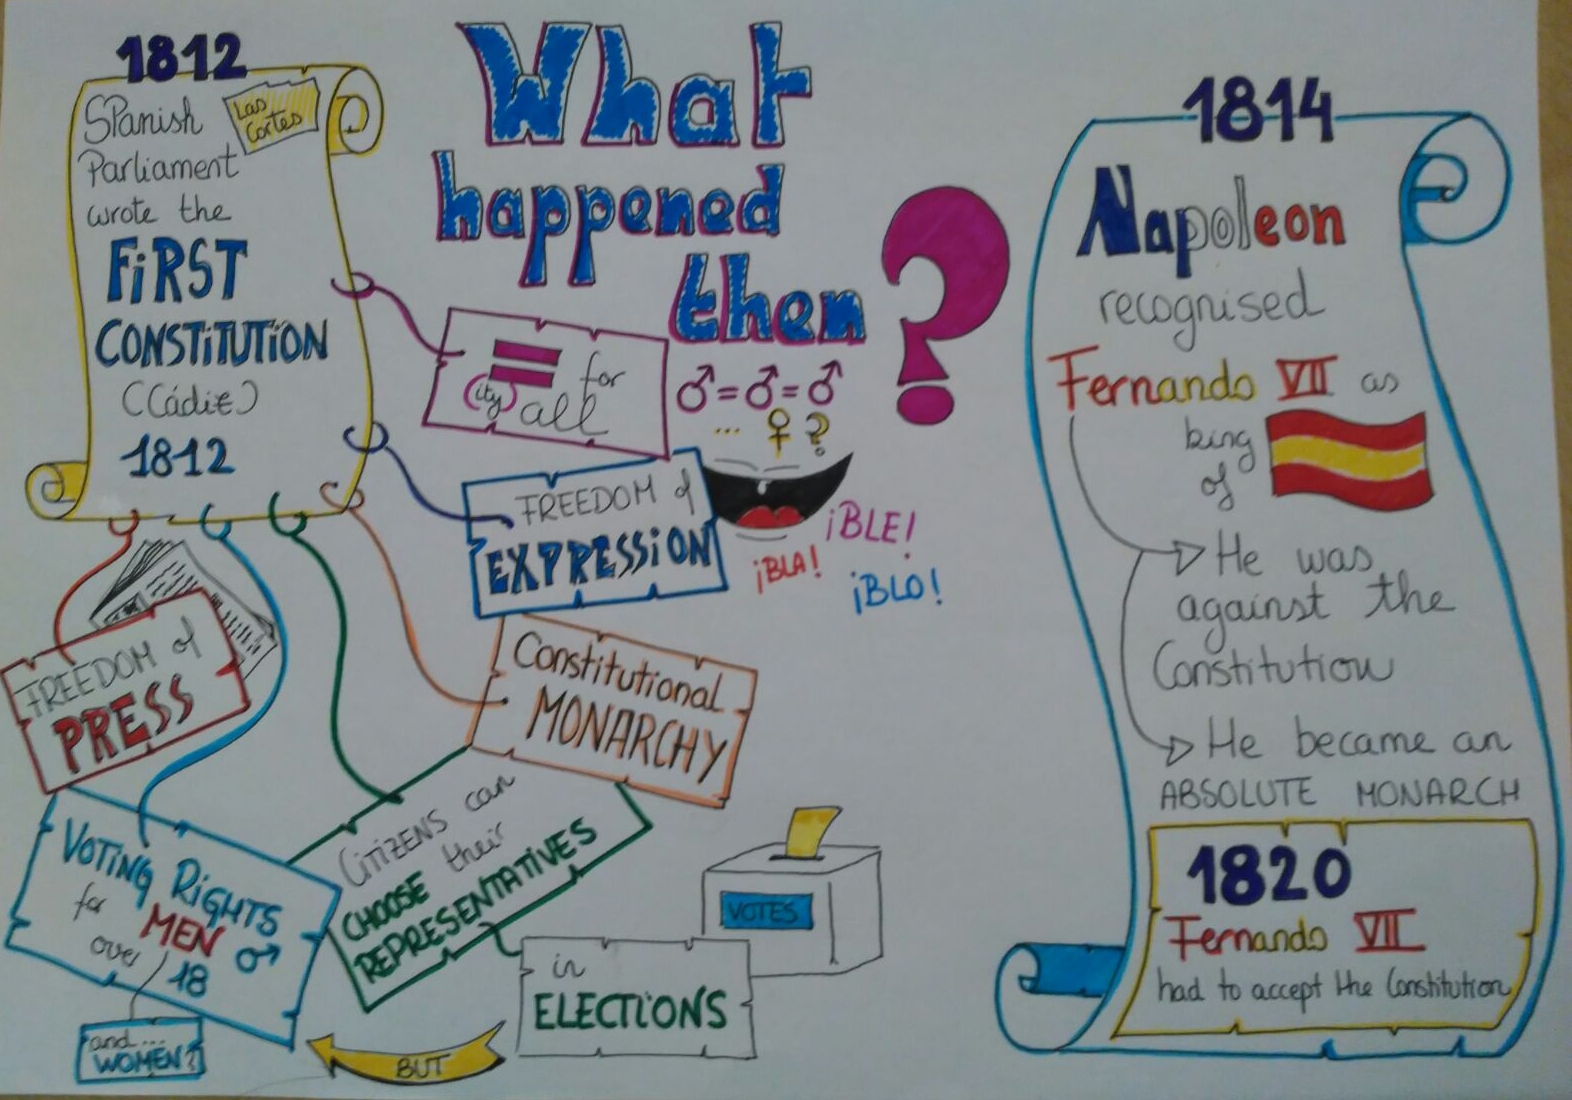 What
happened
then ?
1812
Spanish
Las
Cortes
Parliament
wrote the
FiRST
CONSTiTUTiON
(Cádiz)
1812
= (ity) for
all
♂=♂=♂
... ♀?
FREEDOM of
EXPRESSiON
¡BLA!
¡BLE!
¡BLO!
Constitutional
MONARCHY
FREEDOM of
PRESS
VOTiNG RiGHTS
for MEN ♂
over 18
and...
WOMEN?
CiTiZENS can
CHOOSE their
REPRESENTATiVES
in
ELECTiONS
VOTES
BUT
1814
Napoleon
recognised
Fernando VII as
king
of
He was
against the
Constitution
He became an
ABSOLUTE MONARCH
1820
Fernando VII
had to accept the Constitution